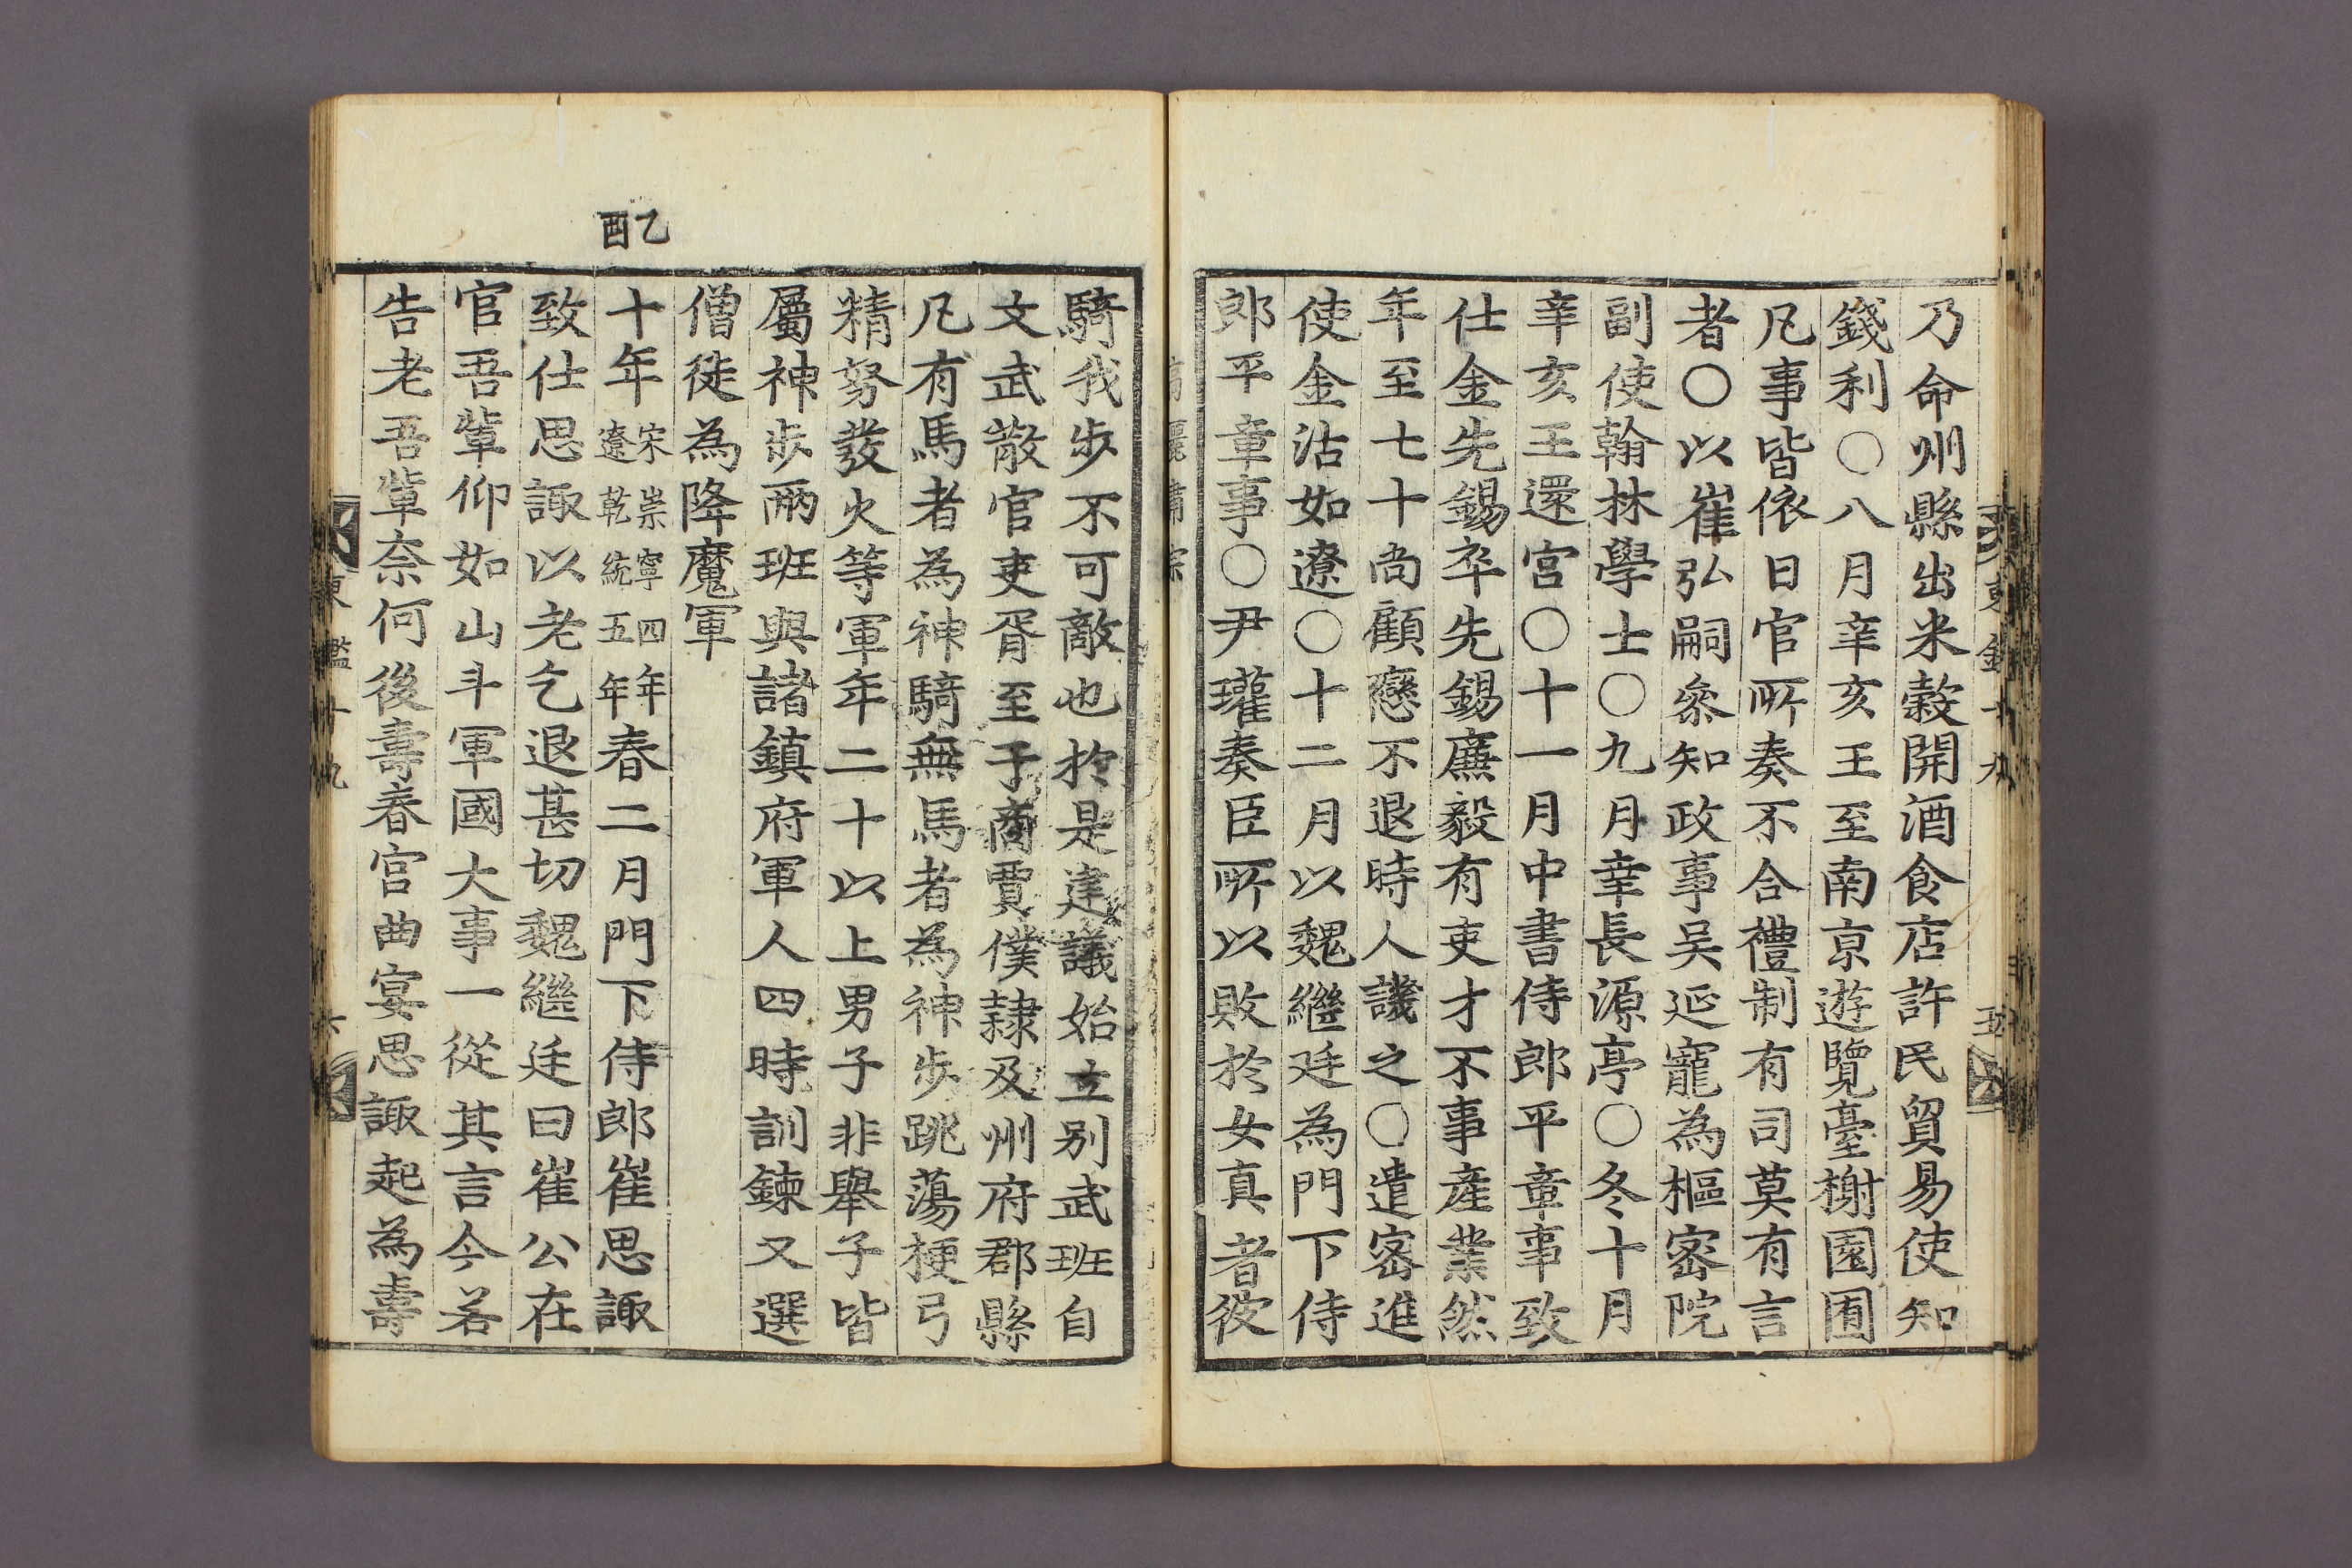 乃命州縣出米穀開酒食店許民貿易使知
錢利〇八月辛亥王至南京遊覽臺榭園囿
凡事皆依日官所奏不合禮制有司莫有言
者〇以崔弘嗣叅知政事吴延寵為樞密院
副使翰林學士〇九月幸長源亭〇冬十月
辛亥王還宮〇十一月中書侍郎平章事致
仕金先錫卒先錫廉毅有吏才不事産業然
年至七十尚顧戀不退時人譏之〇遣密進
使金沽如遼〇十二月以魏繼廷為門下侍
郎平章事〇尹瓘奏臣所以敗於女真者彼
騎我步不可敵也於是建議始立别武班自
文武散官吏胥至于商賈僕隷及州府郡縣
凡有馬者為神騎無馬者為神步跳蕩梗弓
精弩發火等軍年二十以上男子非舉子皆
屬神步兩班與諸鎮府軍人四時訓鍊又選
僧徒為降魔軍
乙酉
十年宋崇寧四年遼乾統五年春二月門下侍郎崔思諏
致仕思諏以老乞退甚切魏繼廷曰崔公在
官吾軰仰如山斗軍國大事一從其言今若
告老吾軰奈何後壽春宮曲宴思諏起為壽
東鑑十九